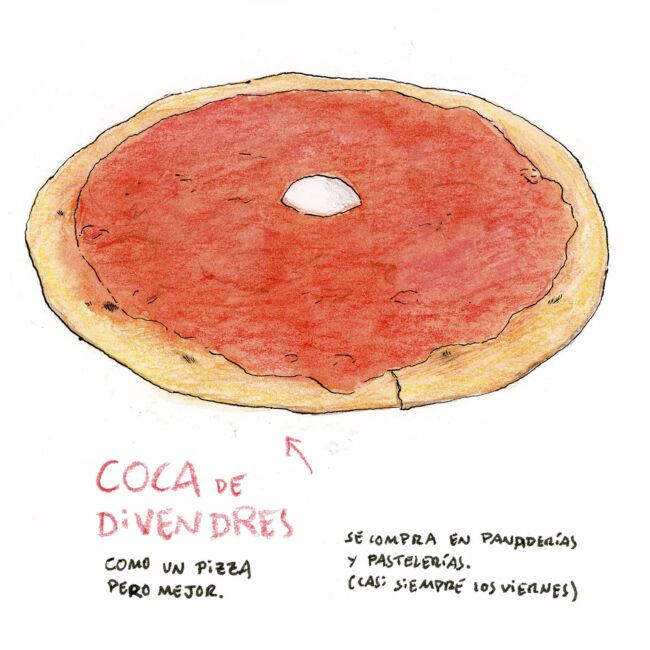 COCA DE
DiVENDRES
COMO UN PIZZA
PERO MEJOR.
SE COMPRA EN PANADERÍAS
Y PASTELERÍAS.
(CASI SIEMPRE LOS VIERNES)